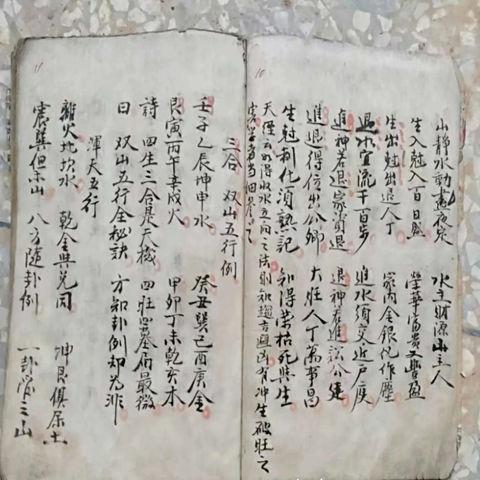 山静水動晝夜定 水主財源山主人
生入尅入百日盛 榮華富貴又豐盈
生出尅出退人丁 家内金銀化作塵
退水宜流千百步 進水須交近户庭
進神若退家資退 退神若進訟公連
進退得位出公卿 大旺人丁萬事昌
生尅制化須熟記 知得榮枯死與生
天經云如得收水五行之法則知趨吉避凶有冲生破旺之
三合 双山五行例
壬子乙辰坤申水 癸丑巽巳酉庚金
艮寅丙午辛戌火 甲卯丁未乾亥木
詩 四生三合是天機 四旺四墓居最微
曰 双山五行全秘訣 方知卦例却為非
渾天五行
離火地坎水 乾金與兌同 坤艮俱屬土
震巽但木山 八方隨卦例 一卦管三山